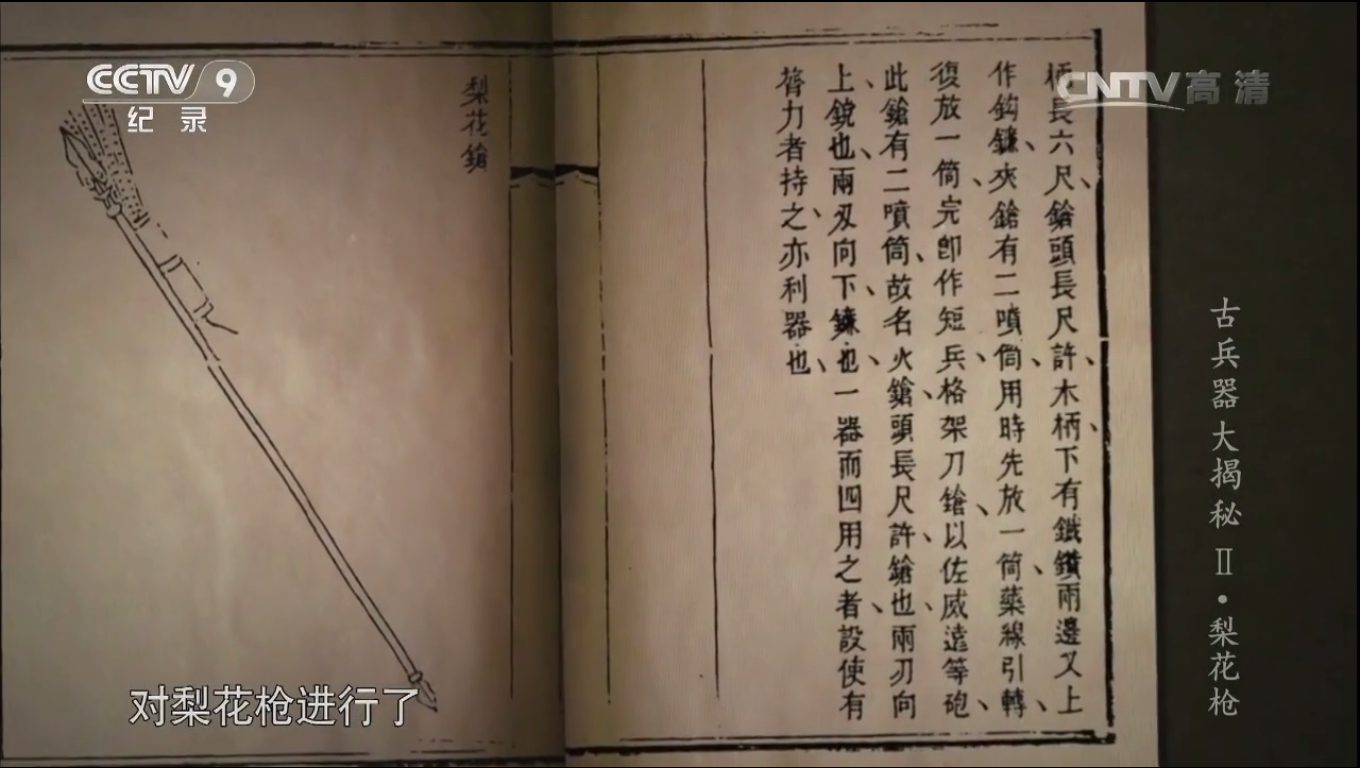 CCTV 9
纪录
CNTV高清
柄長六尺、鎗頭長尺許、木柄、下有鐵鑽兩邊又上
作鈎鐮、夾鎗有二噴筒、用時先放一筒、藥線引轉、
復放一筒、完卽作短兵、格架刀鎗、以佐威遠等砲、
此鎗有二噴筒、故名火鎗、頭長尺許、鎗也、兩刃向
上、鋭也、兩刄向下、鐮也、一器而四用之者、設使有
膂力者持之、亦利器也、
梨花鎗
古兵器大揭秘Ⅱ·梨花枪
对梨花枪进行了